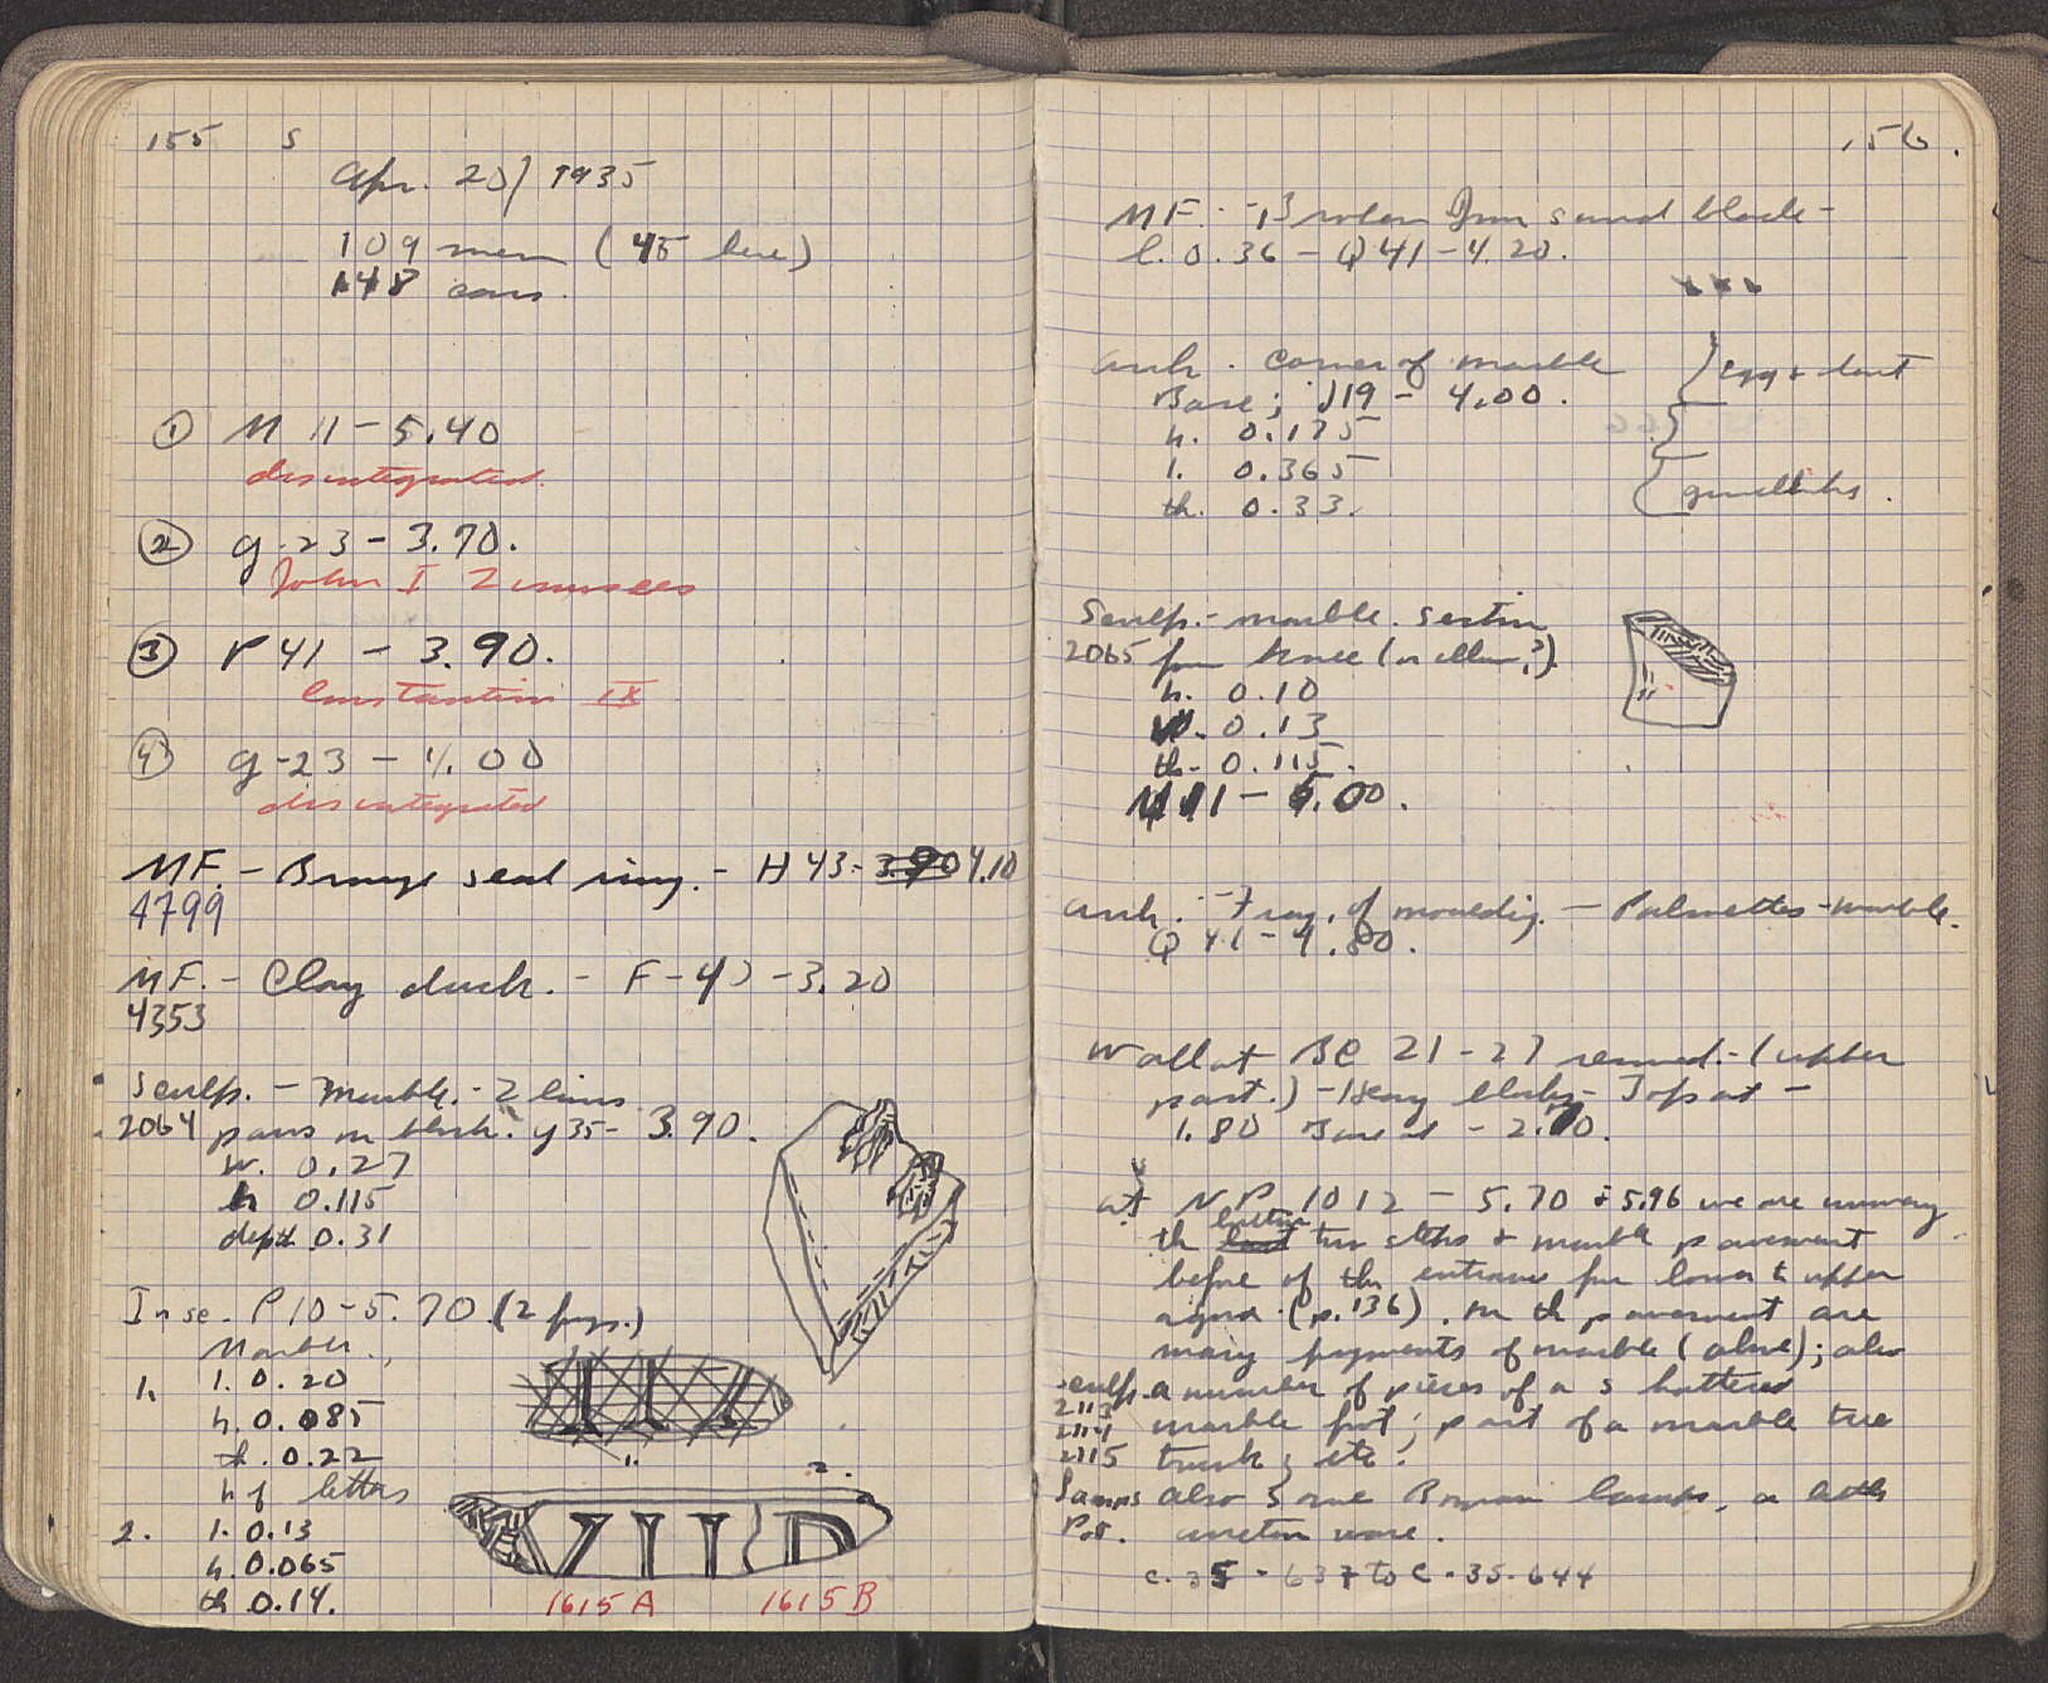 155 S
Apr. 20/ 1935
109 men (45 here)
148 cars.
① M 11 - 5.40
disintegrated.
② g-23 - 3.70.
John I Zimisces
③ P 41 - 3.90.
Constantine IX
④ g-23 - 4.00
disintegrated
MF. - Bronze seal ring. - H 43 - 3.90 4.10
4799
MF. - Clay duck. - F-42 - 3.20
4353
Sculp. - Marble. - 2 lions
2064 paws on block. y 35 - 3.90.
w. 0.27
h 0.115
depth 0.31
Insc. P 10 - 5.70 (2 frgs.)
Marble.
1. l. 0.20
h. 0.085
th. 0.22
h of letters
1.
2. l. 0.13
h. 0.065
th 0.14.
2.
VII D
1615 A 1615 B
156.
MF. - Broken Iron sword blade -
l. 0.36 - Q 41 - 4.20.
Arch. Corner of marble
Base; J19 - 4.00.
h. 0.175
l. 0.365
th. 0.33.
egg & dart
guilloche.
Sculp. - marble. Section
2065 from knee (or elbow?).
h. 0.10
w. 0.13
th. 0.115.
M 11 - 5.00.
Arch. - Frag. of moulding. - Palmettes - marble.
Q 41 - 4.80.
Wall at BC 21-27 removed. - (upper
part.) - Heavy blocks - Top at -
1.80 Base at - 2.70.
At N.P 10 12 - 5.70 & 5.96 we are uncovering
the last bottom two steps & marble pavement
before of the entrance from lower to upper
agora (p. 136). On the pavement are
many fragments of marble (above); also
Sculp. a number of pieces of a shattered
2113
2114 marble foot; part of a marble tree
2115 trunk; etc.
Lamps also some Roman lamps, a little
Pot. arretine ware.
C. 35 - 637 to C - 35 - 644